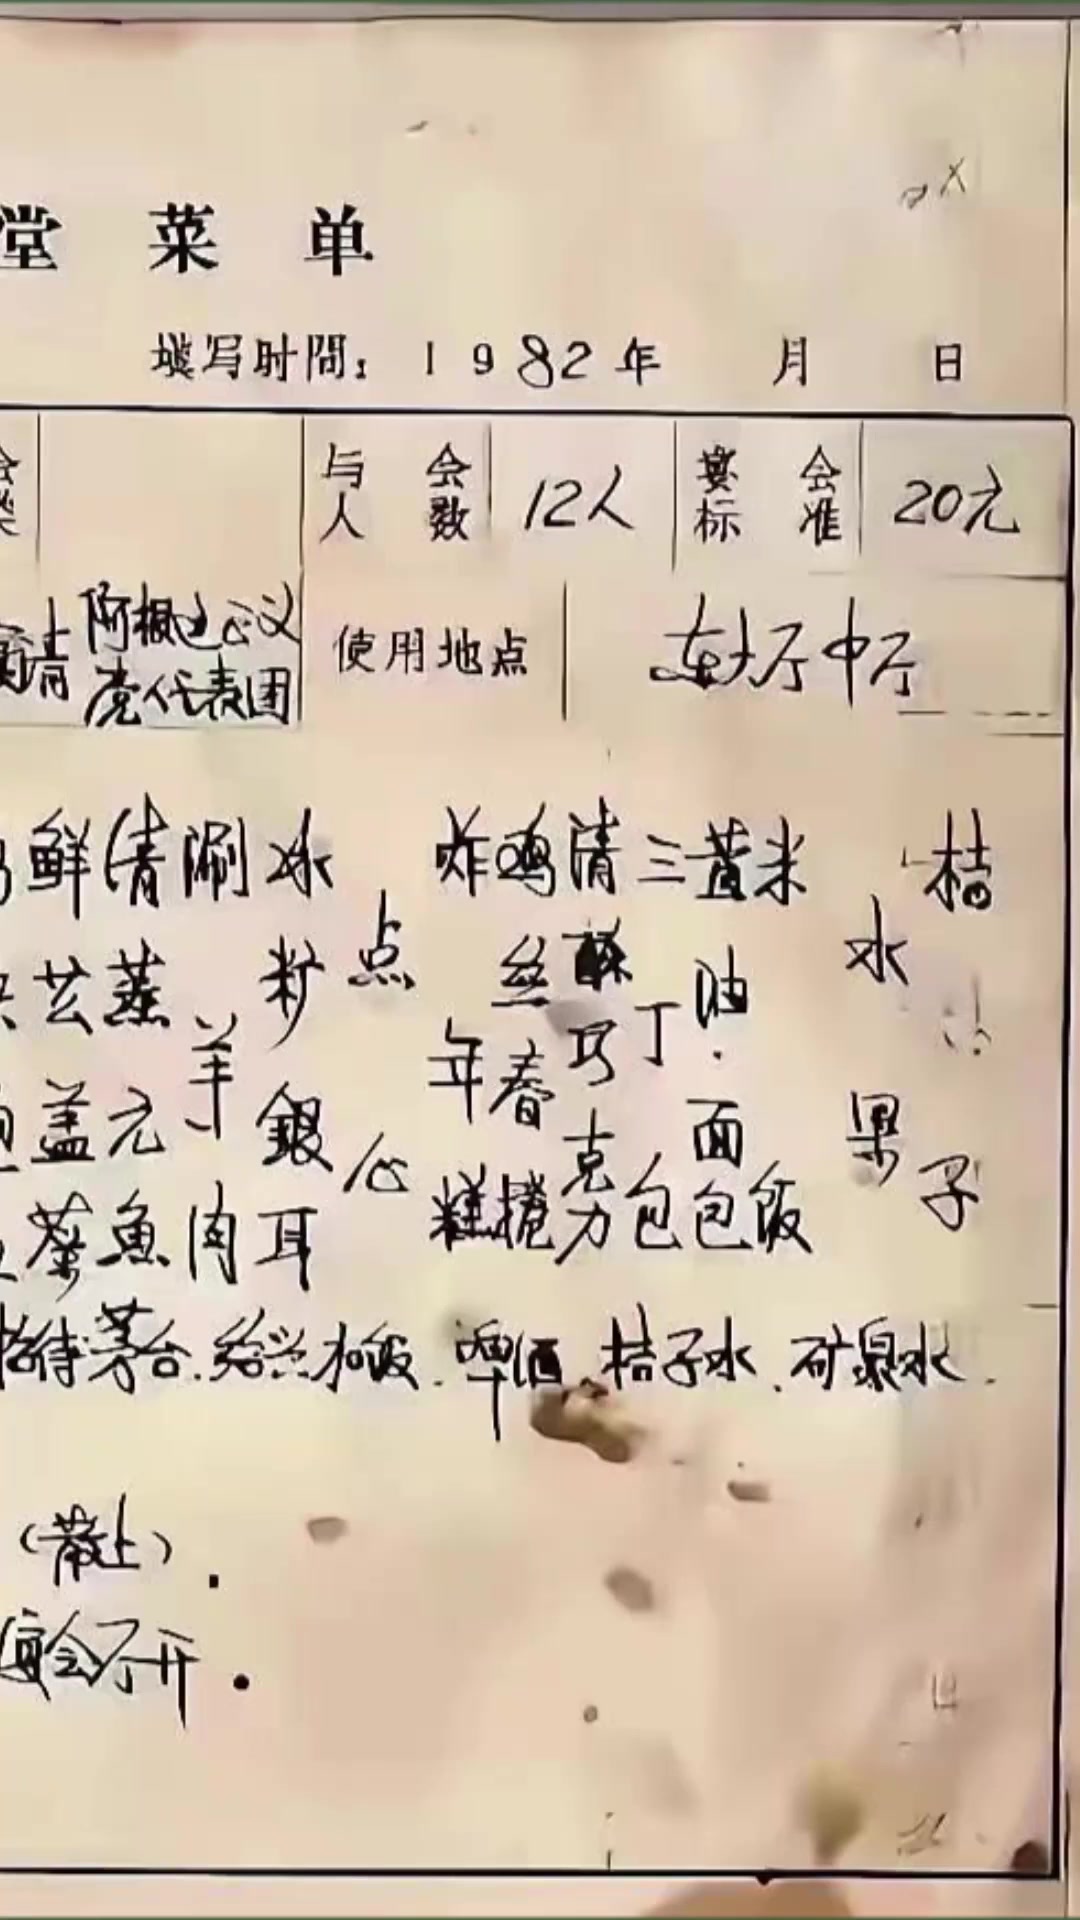 堂 菜 单
填写时間：1982年 月 日
与会人数
12人
宴会标准
20元
宴请
阿根廷正义
党代表团
使用地点
东大厅中厅
鲜芸盖菜
清蒸元魚
涮羊肉
冰籵銀耳
点心
炸年糕
鸡丝春捲
清酥巧克力
三丁包
黄油.面包
米饭
水果
桔子
招待茅台.绍兴加饭.啤酒.桔子水.矿泉水.
（散上）.
宴会厅开.